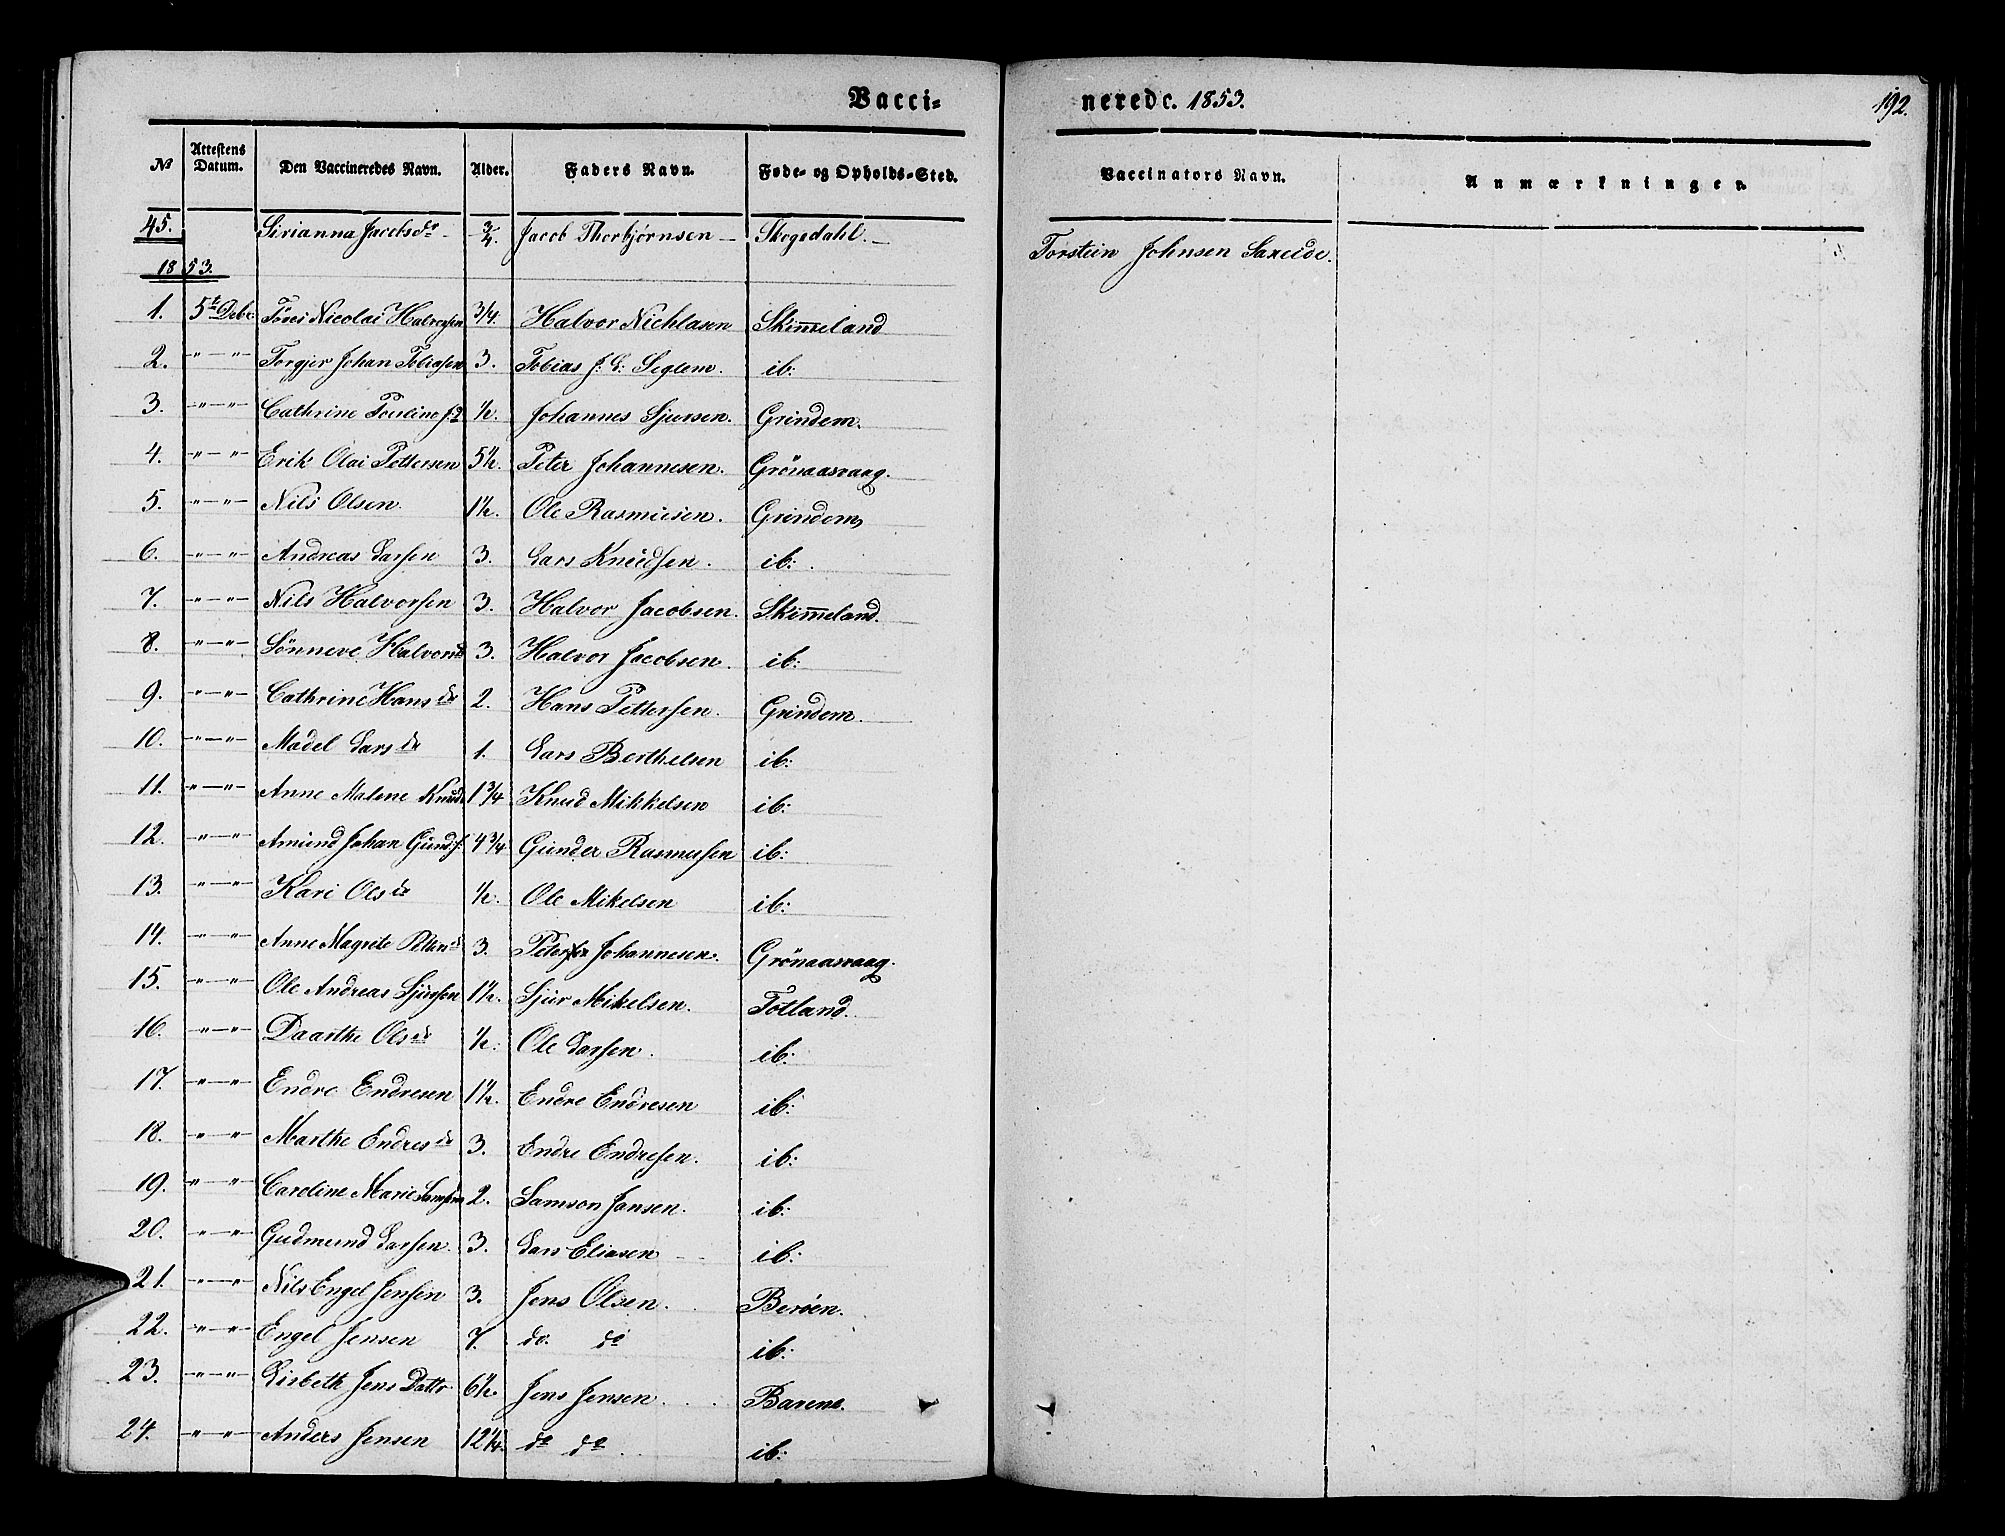 Vacci- nerede. 1853. 192.
No Attestens Datum. Den Vaccineredes Navn. Alder. Faders Navn. Føde- og Opholds-Sted. Vaccinators Navn. Anmærkninger.
45. Sirianna Jacobsdr 3/4. Jacob Thorbjørnsen Skogsdahl. Torstein Johnsen Sareide.
1853.
1. 5te Debr. Nicolai Halvorsen 3/4. Halvor Nichlasen Skim̅eland
2. " — " Torgjer Johan Tobiasen 3. Tobias J. G: Seglem. ib:
3. " — " Cathrine Pouline 1/2. Johannes Sjursen. Grindem.
4. " — " Erik Olai Pettersen 5 1/2. Peter Johannesen. Grönaasvaag.
5. " — " Nils Olsen. 1 1/2. Ole Rasmusen. Grindem
6. " — " Andreas Larsen 3. Lars Knudsen. ib:
7. " — " Nils Halvorsen 3. Halvor Jacobsen. Skim̅eland.
8. " — " Sönneve Halvorsd 3. Halvor Jacobsen. ib:
9. " — " Cathrine Hansdr 2. Hans Pettersen. Grindem.
10. " — " Madel Larsdr 1. Lars Berthelsen ib:
11. " — " Anne Malene Knuds 1 3/4 Knud Mikkelsen ib:
12. " — " Amund Johan Gunds. 4 3/4. Gunder Rasmusen ib:
13. " — " Kari Olsdr 1/2. Ole Mikelsen ib:
14. " — " Anne Magrete Petersd 3. Peter Johannesen. Grönaasvaag.
15. " — " Ole Andreas Sjursen 1 1/2. Sjur Mikelsen. Totland.
16. " — " Daarthe Olsdr 1/2. Ole Larsen. ib:
17. " — " Endre Endresen 1 1/2. Endre Endresen ib:
18. " — " Marthe Endresdr 3. Endre Endresen. ib:
19. " — " Caroline Marie Samsons 2. Samson Jansen. ib:
20. " — " Gudmund Larsen. 3. Lars Eliasen ib:
21. " — " Nils Engel Jensen 3. Jens Olsen. Beröen.
22. " — " Engel Jensen 7. do. do ib:
23. " — " Lisbeth Jens Dattr 6 1/2. Jens Jensen. Barene.
24. " — " Anders Jensen 12 1/4. do do ib: